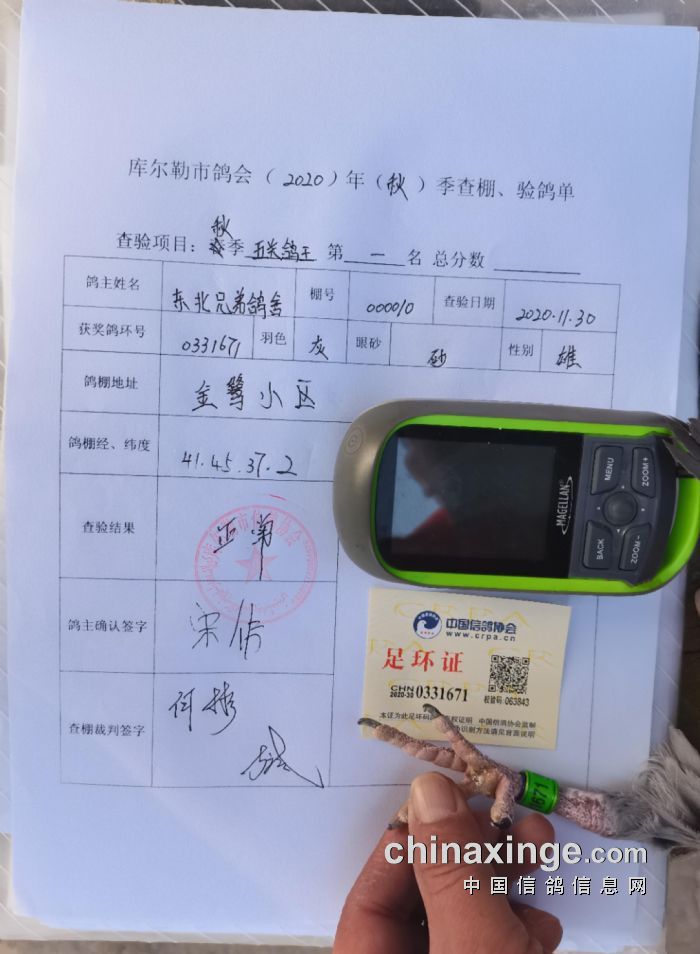 库尔勒市鸽会（2020）年（秋）季查棚、验鸽单
秋
查验项目：季 五关鸽王 第 一 名 总分数
鸽主姓名 东北兄弟鸽舍 棚号 000010 查验日期 2020.11.30
获奖鸽环号 0331671 羽色 灰 眼砂 砂 性别 雄
鸽棚地址 金鹭小区
鸽棚经、纬度 41.45.37.2
查验结果 正常
鸽主确认签字 宋
查棚裁判签字 何
MAGELLAN
MENU
ZOOM+
BACK
ZOOM-
CRPA
中国信鸽协会
www.crpa.cn
足环证
CHN 2020-29 0331671
校验码:063843
中国信鸽协会监制
识别方法请见背面说明
1671
chinaxinge.com
中国信鸽信息网